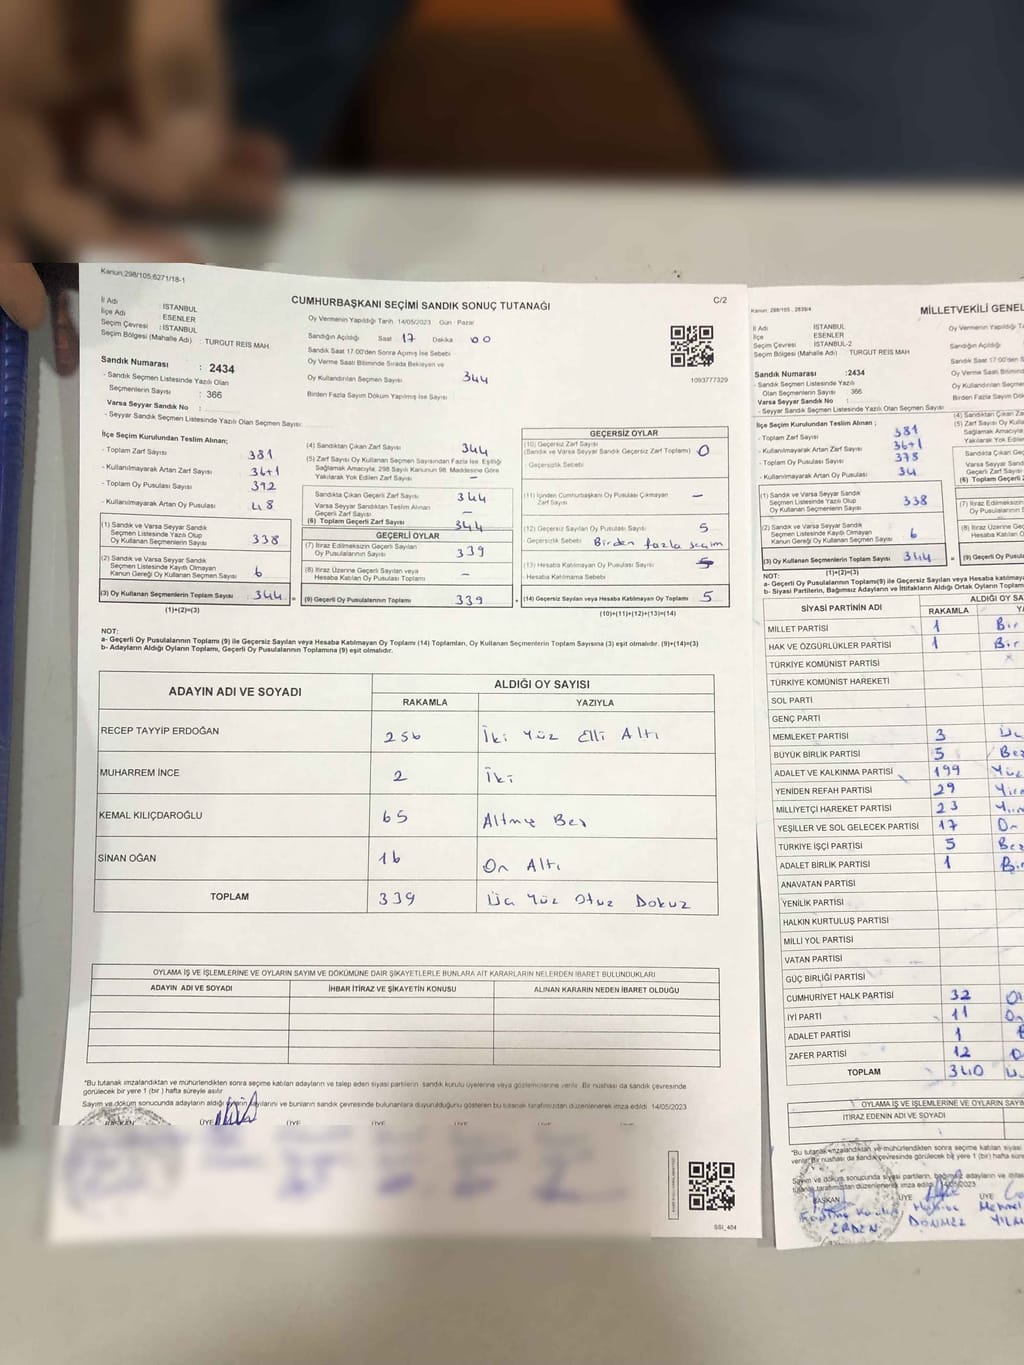 Kanun;298/105;6271/18-1
C/2
CUMHURBAŞKANI SEÇİMİ SANDIK SONUÇ TUTANAĞI
İl Adı : İSTANBUL
İlçe Adı : ESENLER
Seçim Çevresi : İSTANBUL
Seçim Bölgesi (Mahalle Adı) : TURGUT REİS MAH.
Sandık Numarası : 2434
- Sandık Seçmen Listesinde Yazılı Olan
Seçmenlerin Sayısı : 366
Varsa Seyyar Sandık No :
- Seyyar Sandık Seçmen Listesinde Yazılı Olan Seçmen Sayısı:
Oy Vermenin Yapıldığı Tarih 14/05/2023 Gün : Pazar
Sandığın Açıldığı Saat : 17 Dakika : 00
Sandık Saat 17:00'den Sonra Açılmış İse Sebebi
Oy Verme Saati Bitiminde Sırada Bekleyen ve
Oy Kullandırılan Seçmen Sayısı 344
Birden Fazla Sayım Döküm Yapılmış İse Sayısı
1093777329
İlçe Seçim Kurulundan Teslim Alınan;
- Toplam Zarf Sayısı 381
- Kullanılmayarak Artan Zarf Sayısı 36+1
- Toplam Oy Pusulası Sayısı 392
- Kullanılmayarak Artan Oy Pusulası 48
(1) Sandık ve Varsa Seyyar Sandık
Seçmen Listesinde Yazılı Olup
Oy Kullanan Seçmenlerin Sayısı 338
(2) Sandık ve Varsa Seyyar Sandık
Seçmen Listesinde Kaydı Olmayan
Kanun Gereği Oy Kullanan Seçmen Sayısı 6
(3) Oy Kullanan Seçmenlerin Toplam Sayısı 344 =
(1)+(2)=(3)
(4) Sandıktan Çıkan Zarf Sayısı 344
(5) Zarf Sayısı Oy Kullanan Seçmen Sayısından Fazla İse Eşitliği
Sağlamak Amacıyla; 298 Sayılı Kanunun 98. Maddesine Göre
Yakılarak Yok Edilen Zarf Sayısı –
Sandıkta Çıkan Geçerli Zarf Sayısı 344
Varsa Seyyar Sandıktan Teslim Alınan
Geçerli Zarf Sayısı –
(6) Toplam Geçerli Zarf Sayısı 344
GEÇERLİ OYLAR
(7) İtiraz Edilmeksizin Geçerli Sayılan
Oy Pusulalarının Sayısı 339
(8) İtiraz Üzerine Geçerli Sayılan veya
Hesaba Katılan Oy Pusulası Toplamı –
(9) Geçerli Oy Pusulalarının Toplamı 339 +
GEÇERSİZ OYLAR
(10) Geçersiz Zarf Sayısı
(Sandık ve Varsa Seyyar Sandık Geçersiz Zarf Toplamı) 0
- Geçersizlik Sebebi
(11) İçinden Cumhurbaşkanı Oy Pusulası Çıkmayan
Zarf Sayısı –
(12) Geçersiz Sayılan Oy Pusulası Sayısı 5
- Geçersizlik Sebebi Birden fazla seçim
(13) Hesaba Katılmayan Oy Pusulası Sayısı
- Hesaba Katılmama Sebebi
(14) Geçersiz Sayılan veya Hesaba Katılmayan Oy Toplamı 5
(10)+(11)+(12)+(13)=(14)
NOT:
a- Geçerli Oy Pusulalarının Toplamı (9) ile Geçersiz Sayılan veya Hesaba Katılmayan Oy Toplamı (14) Toplamları, Oy Kullanan Seçmenlerin Toplam Sayısına (3) eşit olmalıdır. (9)+(14)=(3)
b- Adayların Aldığı Oyların Toplamı, Geçerli Oy Pusulalarının Toplamına (9) eşit olmalıdır.
ADAYIN ADI VE SOYADI ALDIĞI OY SAYISI
RAKAMLA YAZIYLA
RECEP TAYYİP ERDOĞAN 256 İki Yüz Elli Altı
MUHARREM İNCE 2 İki
KEMAL KILIÇDAROĞLU 65 Altmış Beş
SİNAN OĞAN 16 On Altı
TOPLAM 339 Üç Yüz Otuz Dokuz
OYLAMA İŞ VE İŞLEMLERİNE VE OYLARIN SAYIM VE DÖKÜMÜNE DAİR ŞİKAYETLERLE BUNLARA AİT KARARLARIN NELERDEN İBARET BULUNDUKLARI
ADAYIN ADI VE SOYADI İHBAR İTİRAZ VE ŞİKAYETİN KONUSU ALINAN KARARIN NEDEN İBARET OLDUĞU
*Bu tutanak imzalandıktan ve mühürlendikten sonra seçime katılan adayların ve talep eden siyasi partilerin sandık kurulu üyelerine veya gözlemcilerine verilir. Bir nüshası da sandık çevresinde
görülecek bir yere 1 (bir) hafta süreyle asılır
Sayım ve döküm sonucunda adayların aldığı oyların sayılarını ve bunların sandık çevresinde bulunanlara duyurulduğunu gösteren bu tutanak tarafımızdan düzenlenerek imza edildi. 14/05/2023
BAŞKAN ÜYE ÜYE ÜYE ÜYE ÜYE
SSİ_404
Kanun: 298/105 , 2839/4
MİLLETVEKİLİ GENEL
İl Adı İSTANBUL
İlçe ESENLER
Seçim Çevresi İSTANBUL-2
Seçim Bölgesi (Mahalle Adı) TURGUT REİS MAH
Sandık Numarası :2434
- Sandık Seçmen Listesinde Yazılı
Olan Seçmenlerin Sayısı : 366
Varsa Seyyar Sandık No :
- Seyyar Sandık Seçmen Listesinde Yazılı Olan Seçmen Sayısı
Oy Vermenin Yapıldığı
Sandığın Açıldığı
Sandık Saat 17:00'den
Oy Verme Saati
Oy Kullandırılan
Birden Fazla Sayım
İlçe Seçim Kurulundan Teslim Alınan ;
- Toplam Zarf Sayısı 381
- Kullanılmayarak Artan Zarf Sayısı 36+1
- Toplam Oy Pusulası Sayısı 378
- Kullanılmayarak Artan Oy Pusulası 34
(1) Sandık ve Varsa Seyyar Sandık
Seçmen Listesinde Yazılı Olup
Oy Kullanan Seçmenlerin Sayısı 338
(2) Sandık ve Varsa Seyyar Sandık
Seçmen Listesinde Kaydı Olmayan
Kanun Gereği Oy Kullanan Seçmen Sayısı 6
(3) Oy Kullanan Seçmenlerin Toplam Sayısı 344 =
(1)+(2)=(3)
(4) Sandıktan Çıkan Zarf
(5) Zarf Sayısı Oy
Sağlamak Amacıyla,
Yakılarak Yok Edilen
Sandıkta Çıkan
Varsa Seyyar Sandık
(6) Toplam Geçerli
(7) İtiraz Edilmeksizin
Oy Pusulalarının
(8) İtiraz Üzerine
Hesaba Katılan
(9) Geçerli Oy
NOT:
a- Geçerli Oy Pusulalarının Toplamı(9) ile Geçersiz Sayılan veya Hesaba
b- Siyasi Partilerin, Bağımsız Adayların ve İttifakların Aldığı Ortak Oyların
SİYASİ PARTİNİN ADI ALDIĞI OY
RAKAMLA
MİLLET PARTİSİ 1 Bir
HAK VE ÖZGÜRLÜKLER PARTİSİ 1 Bir
TÜRKİYE KOMÜNİST PARTİSİ
TÜRKİYE KOMÜNİST HAREKETİ
SOL PARTİ
GENÇ PARTİ
MEMLEKET PARTİSİ 3
BÜYÜK BİRLİK PARTİSİ 5
ADALET VE KALKINMA PARTİSİ 199 Yüz
YENİDEN REFAH PARTİSİ 29
MİLLİYETÇİ HAREKET PARTİSİ 23
YEŞİLLER VE SOL GELECEK PARTİSİ 17 On
TÜRKİYE İŞÇİ PARTİSİ 5
ADALET BİRLİK PARTİSİ 1
ANAVATAN PARTİSİ
YENİLİK PARTİSİ
HALKIN KURTULUŞ PARTİSİ
MİLLİ YOL PARTİSİ
VATAN PARTİSİ
GÜÇ BİRLİĞİ PARTİSİ
CUMHURİYET HALK PARTİSİ 32
İYİ PARTİ 11
ADALET PARTİSİ 1
ZAFER PARTİSİ 12
TOPLAM 340
OYLAMA İŞ VE İŞLEMLERİNE VE OYLARIN
İTİRAZ EDENİN ADI VE SOYADI
*Bu tutanak imzalandıktan ve mühürlendikten sonra seçime
verilir. Bir nüshası da sandık çevresinde görülecek bir yere 1 (bir) hafta
Sayım ve döküm sonucunda siyasi partilerin, bağımsız adayların ve
tutanak tarafımızdan düzenlenerek imza edildi. 14/05/2023
BAŞKAN ÜYE ÜYE
ERDEN DÖNMEZ